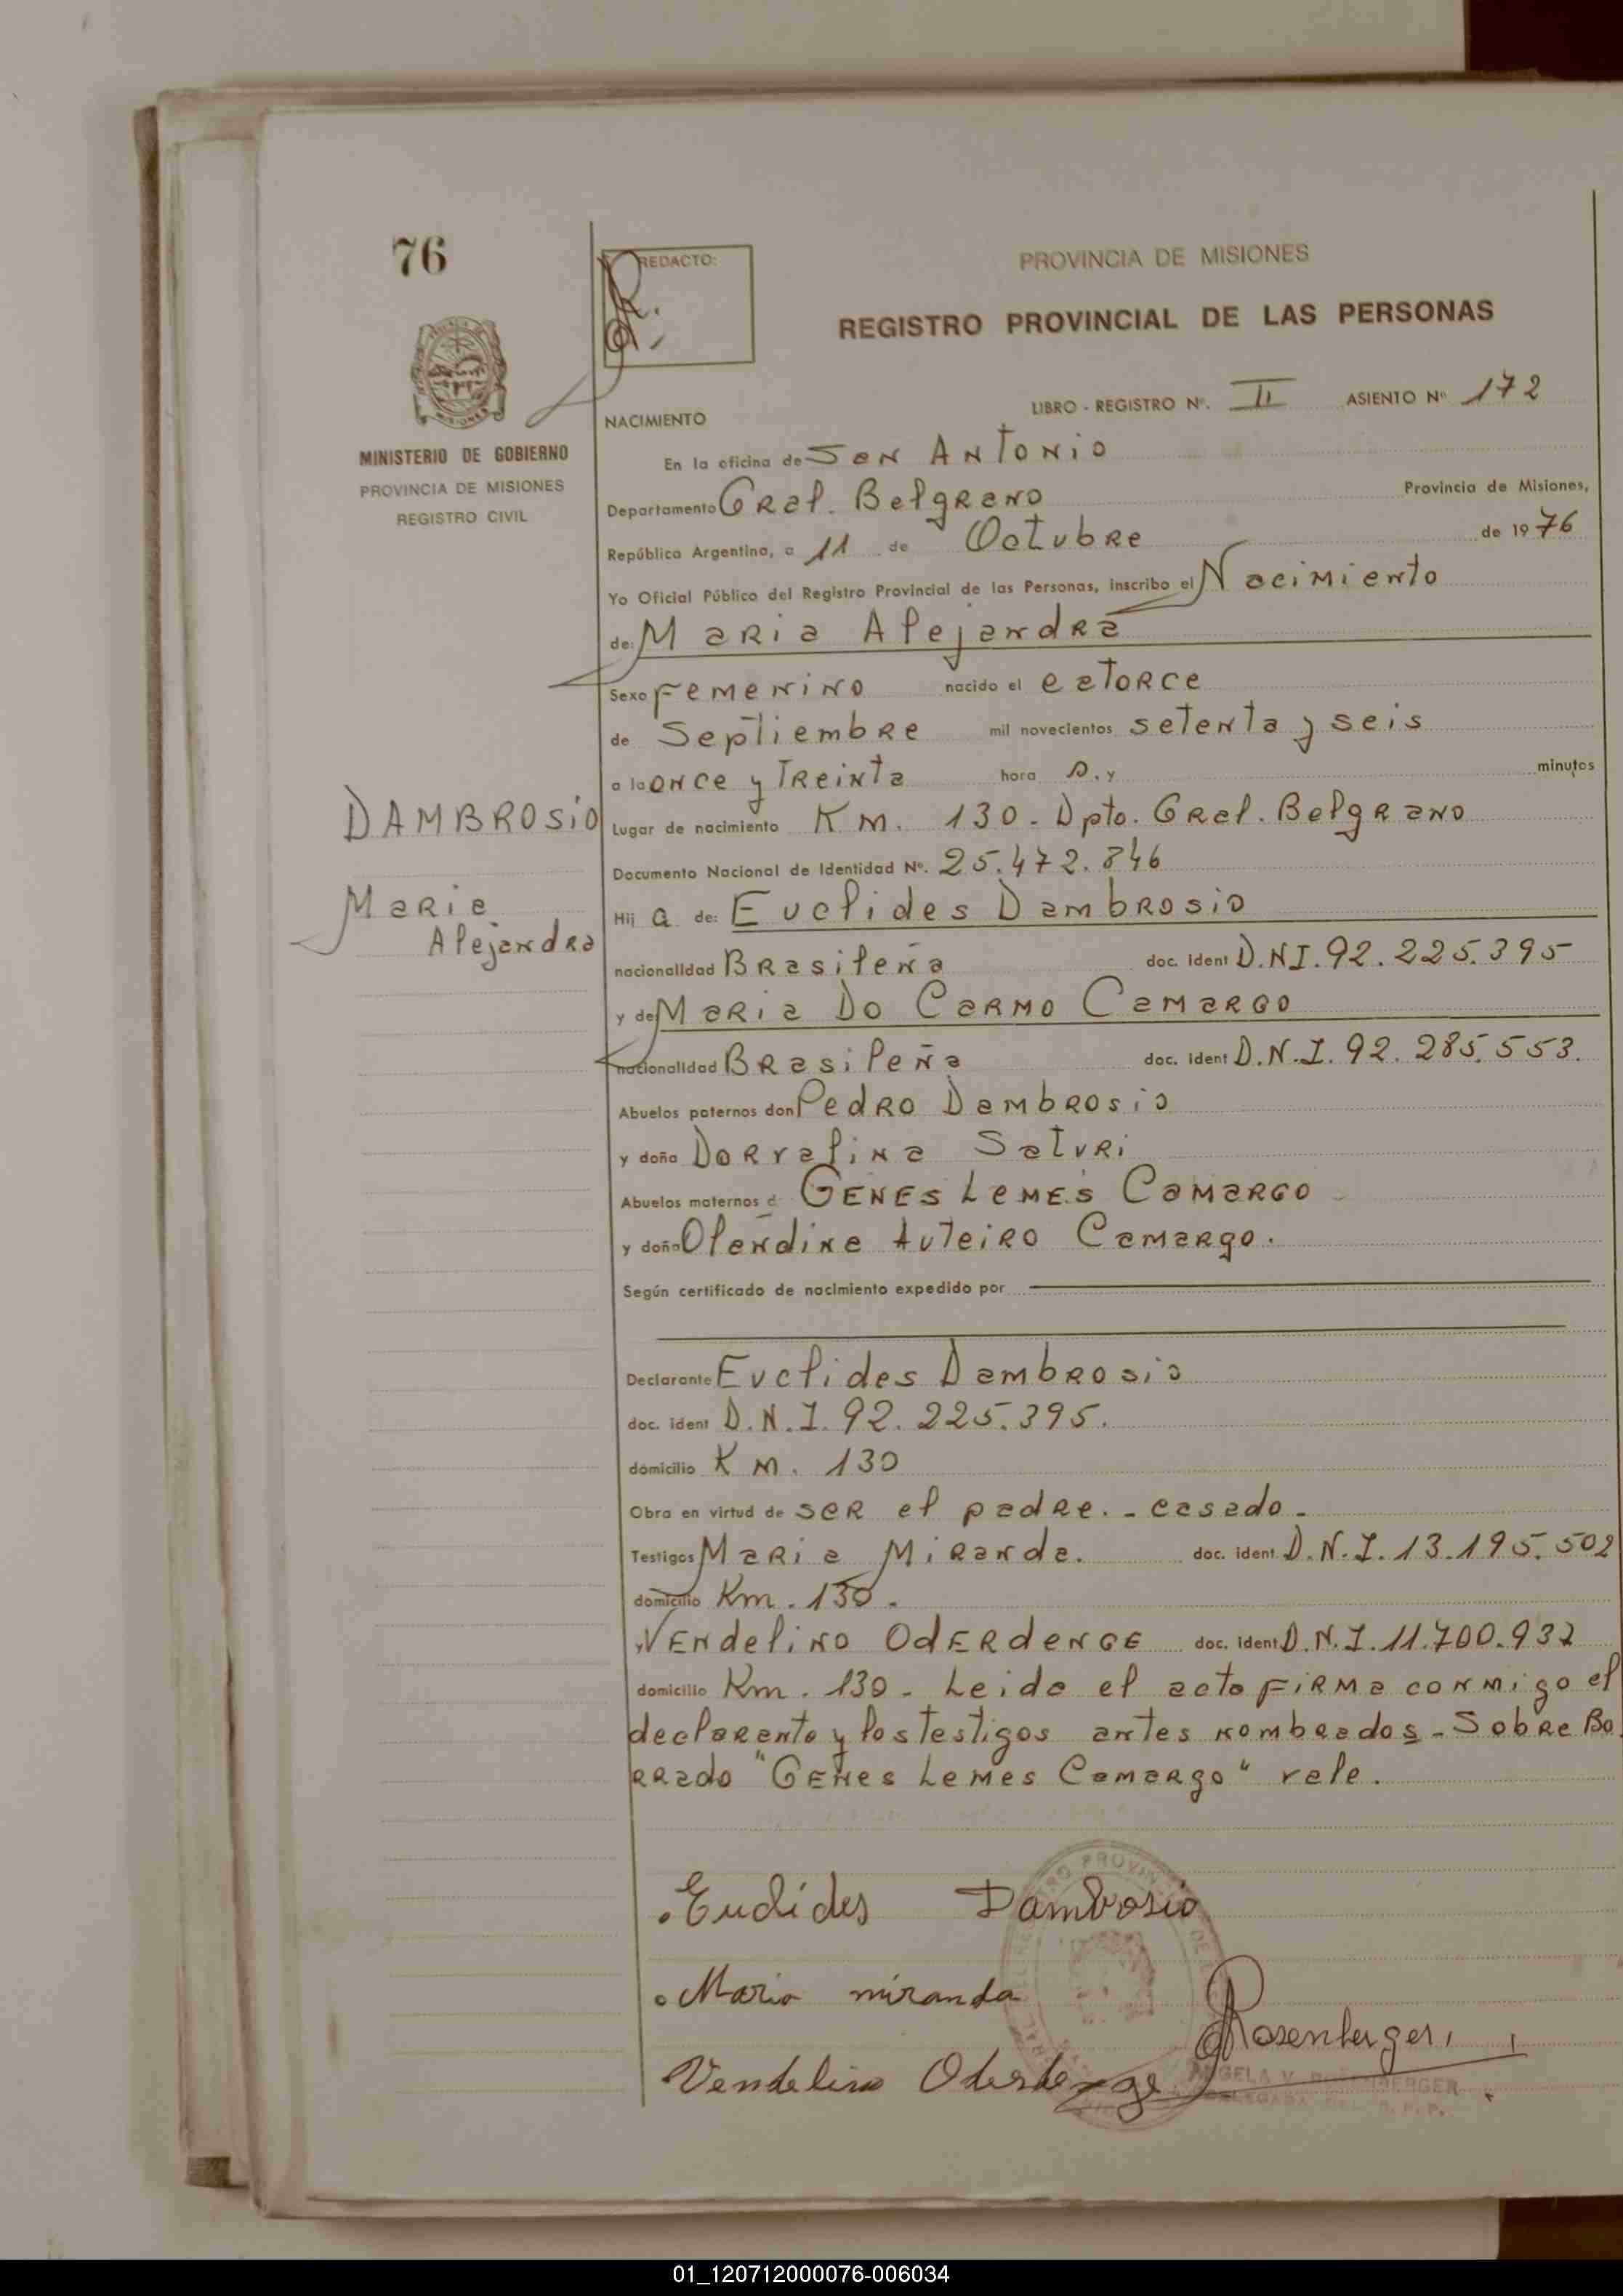 76
REDACTO:
PROVINCIA DE MISIONES
REGISTRO PROVINCIAL DE LAS PERSONAS
MISIONES
MINISTERIO DE GOBIERNO
PROVINCIA DE MISIONES
REGISTRO CIVIL
LIBRO - REGISTRO Nº. II ASIENTO Nº 172
NACIMIENTO
En la oficina de San Antonio
Departamento Gral. Belgrano Provincia de Misiones,
República Argentina, a 11 de Octubre de 1976
Yo Oficial Público del Registro Provincial de las Personas, inscribo el Nacimiento
de: Maria Alejandra
Sexo Femenino nacido el catorce
de Septiembre mil novecientos setenta y seis
a la once y Treinta hora s. y minutos
DAMBROSiO
Maria
Alejandra
Lugar de nacimiento Km. 130. Dpto. Gral. Belgrano
Documento Nacional de Identidad Nº. 25.472.846
Hij a de: Euclides Dambrosio
nacionalidad Brasileña doc. ident D.N.I. 92.225.395
y de Maria Do Carmo Camargo
nacionalidad Brasileña doc. ident D.N.I. 92.285.553.
Abuelos paternos don Pedro Dambrosio
y doña Salvri
Abuelos maternos d Genes Lemes Camargo
y doña Olandina Camargo.
Según certificado de nacimiento expedido por
Declarante Euclides Dambrosio
doc. ident D.N.I. 92.225.395.
domicilio Km. 130
Obra en virtud de ser el padre. - casado -
Testigos Maria Miranda. doc. ident. D.N.I. 13.195.502
domicilio Km. 130.
y Vendelino Oderdenge doc. ident D.N.I. 11.700.932
domicilio Km. 130 - Leida el acta firma conmigo el
declarante y los testigos antes nombrados - Sobre Bo
rrado "Genes Lemes Camargo" vale.
Euclides Dambosio
Maria miranda
Rosenberger
Vendelino Oderdenge
ANGELA V. ROSENBERGER
DELEGADA DEL R.P.P.
01_120712000076-006034